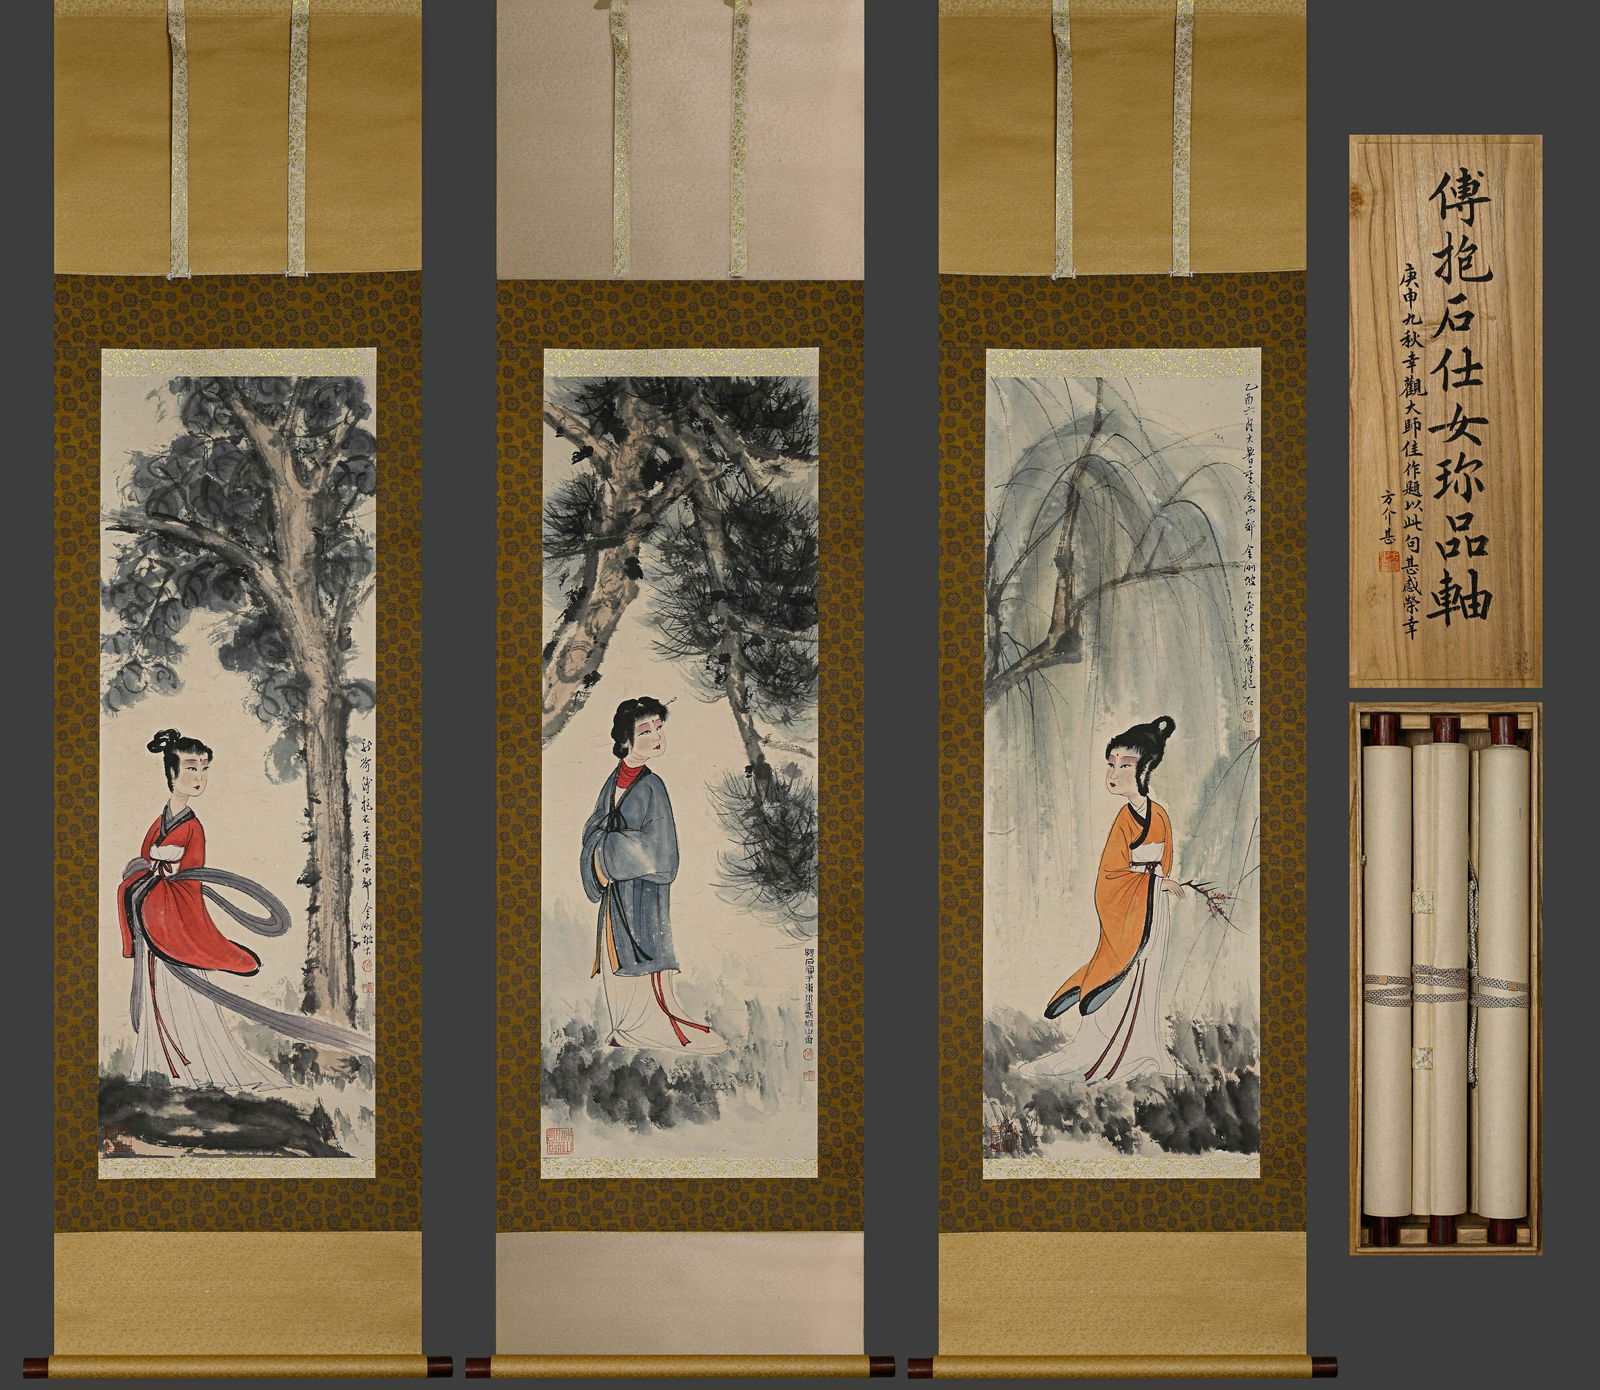 新喻傅抱石重慶西郊金剛坡下
抱石寫于東川金剛坡山齋
乙酉六月大暑重慶西郊金剛坡下寫新喻傅抱石
傅抱石仕女珎品軸
庚申九秋幸觀大師佳作題以此句甚感榮幸
方介堪